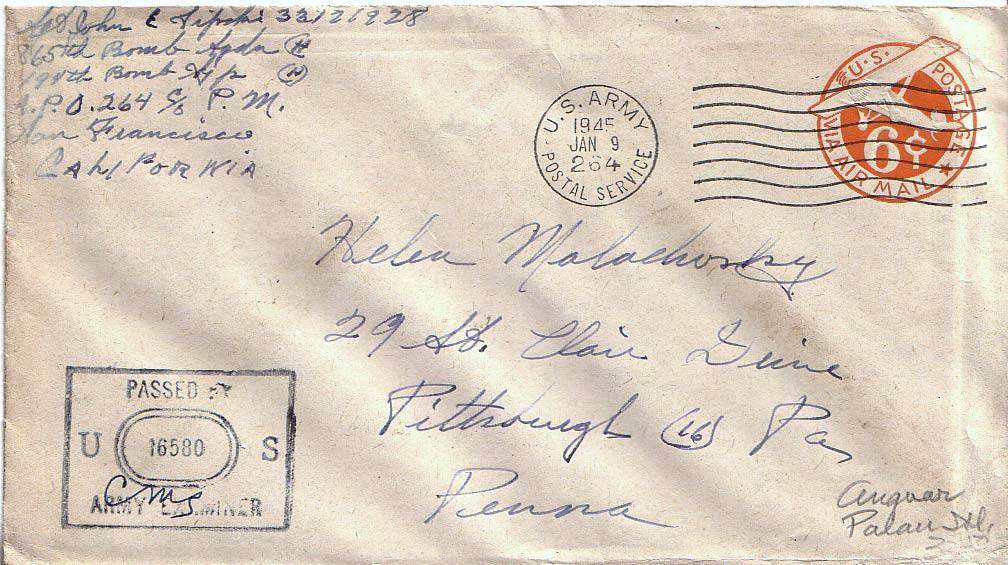 Sgt John E Lipski 33121928
865th Bomb Sqdn (H)
494th Bomb Gp (H)
A.P.O. 264 c/o P.M.
San Francisco
CaliforNia
U.S. ARMY
1945
JAN 9
264
POSTAL SERVICE
U.S. POSTAGE
6¢
VIA AIR MAIL
Helen Malachosky
29 St. Clair
Pittsburgh (16) Pa
Penna
PASSED BY
U 16580 S
ARMY EXAMINER
CMS
Anguar
Palau Isl.